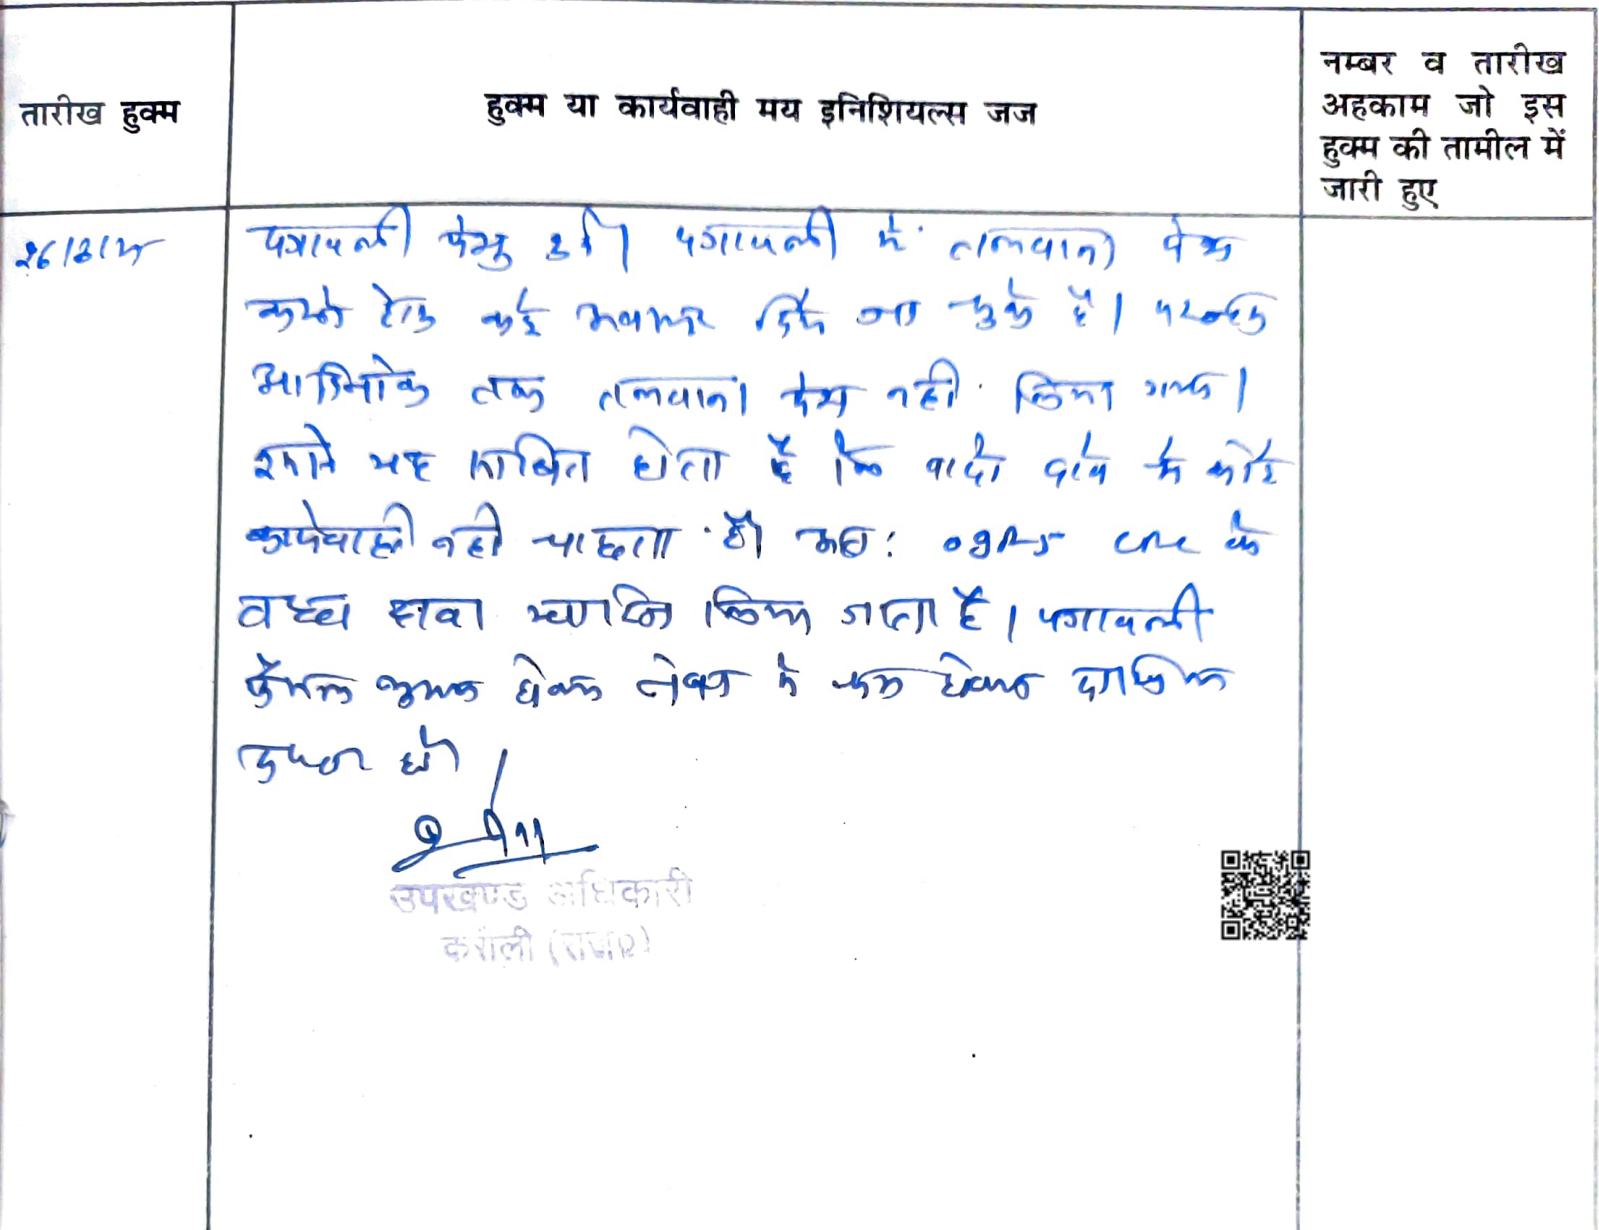 तारीख हुक्म
हुक्म या कार्यवाही मय इनिशियल्स जज
नम्बर व तारीख
अहकाम जो इस
हुक्म की तामील में
जारी हुए
पत्रावली पेश हुई। पत्रावली में तलवाना पेश
करने हेतु कई अवसर दिये जा चुके है। परन्तु
आदिनांक तक तलवाना पेश नही किया गया।
इससे यह साबित होता है कि वादी दावे में कोई
कार्यवाही नही चाहता है। अतः 09R5 CPC के
तहत दावा खारिज किया जाता है। पत्रावली
फैसल शुमार होकर नंबर से कम होकर दाखिल
दफ्तर हो।
उपखण्ड अधिकारी
करौली (राज०)